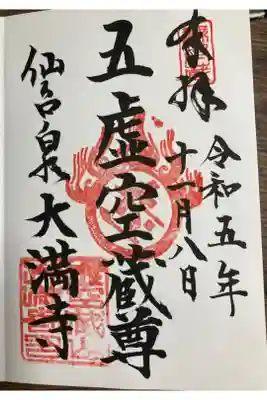 奉拝
令和五年
十一月八日
五虚空蔵尊
仙台 大満寺